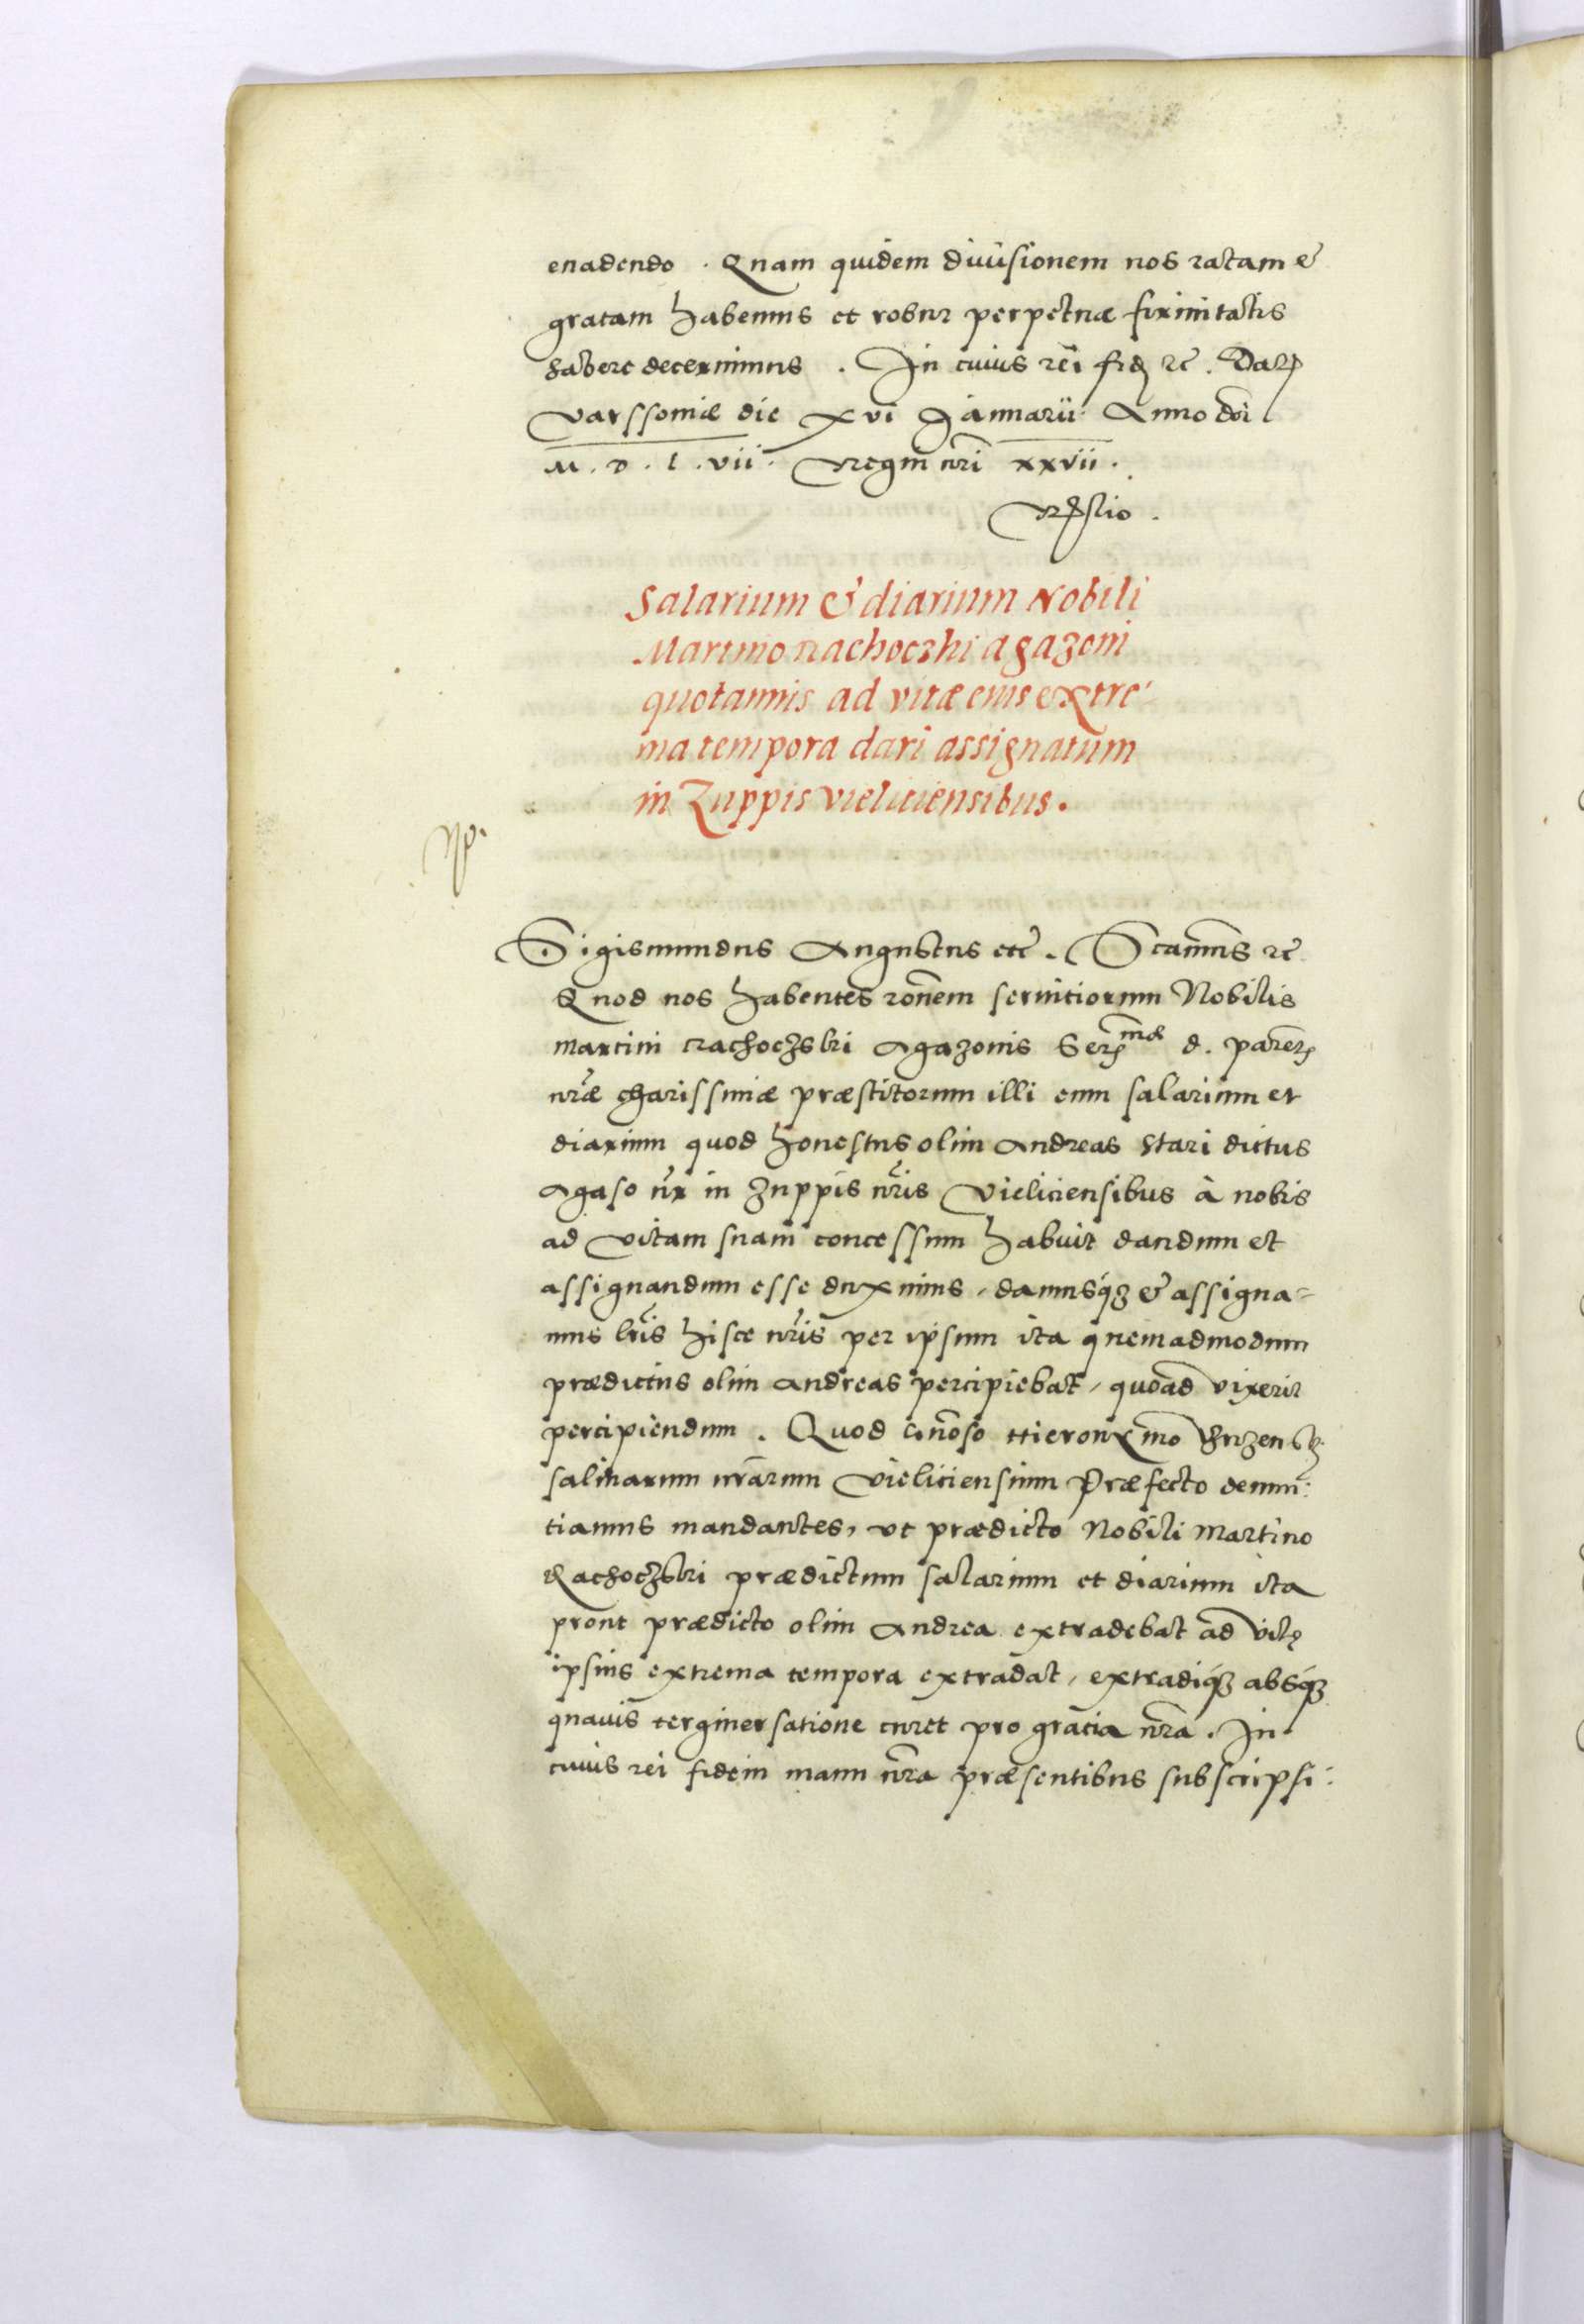 euadendo. Quam quidem diuisionem nos ratam &
gratam habemus et robur perpetuæ firmitatis
habere decernimus. In cuius rei fid ac. Dat
Varssoniæ die xvi Januarii Anno dni
M.D.L.vii. Regni nri xxvii.
Rslio.
Salarium & diarium Nobili
Martino Rachoczhi agazoni
quotannis ad vitæ eius extre-
ma tempora dari assignatum
in Zuppis vieliciensibus.
Sigismundus Augustus etc. Scamus ac
Quod nos habentes ronem seruitiorum Nobilis
Martini Rachoczski Agazonis Sermæ d. parent
nræ charissimæ præstitorum illi eum salarium et
diarium quod honestus olim Andreas Stari dictus
Agaso nr in zuppis nris Vieliciensibus à nobis
ad vitam suam concessum habuit dandum et
assignandum esse duximus, damusq3 & assigna=
mus lris hisce nris per ipsum ita quemadmodum
prædictus olim Andreas percipiebat, quoad vixerit
percipiendum. Quod Gnoso Hieronymo
salinarum nrarum Vieliciensium Præfecto denun:
tiamus mandantes, vt prædicto Nobili Martino
Rachoczski prædictum salarium et diarium ita
prout prædicto olim Andrea extradebat ad vitę
ipsius extrema tempora extradat, extradiq3 absq3
quauis terginersatione curet pro gratia nra. In
cuius rei fidem manu nra præsentibus subscripsi: